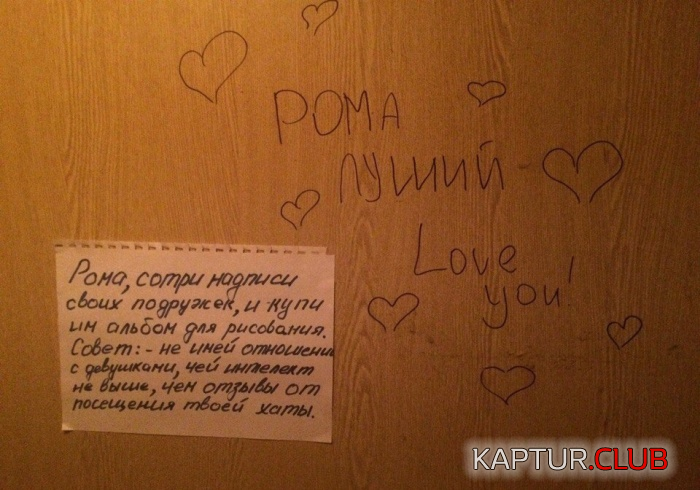 РОМА
ЛУШИЙ
Love
you!
Рома, сотри надписи
своих подружек, и купи
им альбом для рисования.
Совет: - не имей отношени
с девушками, чей интелект
не выше, чем отзывы от
посещения твоей хаты.
KAPTUR.CLUB